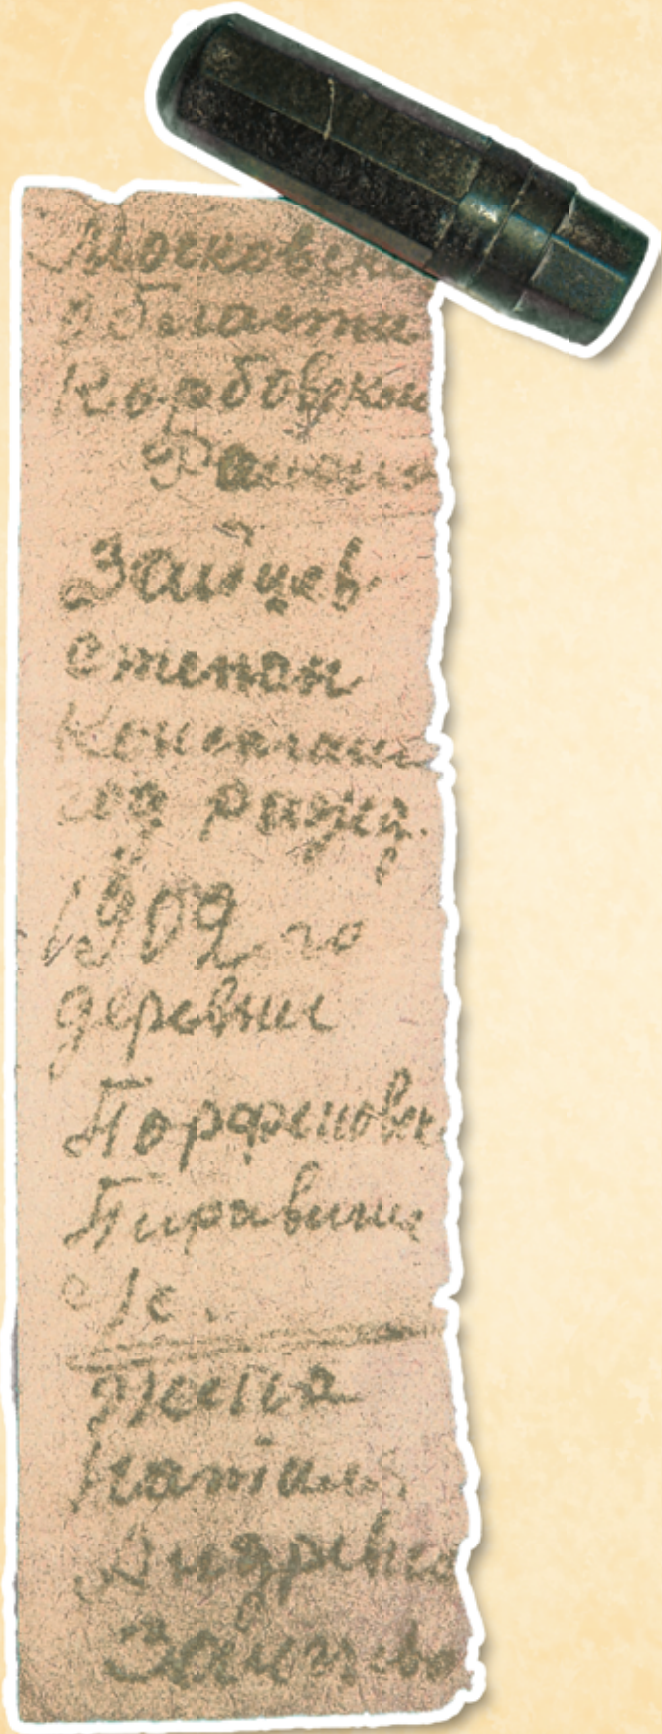 Московско
области
Корбовской
Района
Зайцев
степан
Констант
год рожд.
1909 го
деревни
Порфеновк
Пиравити
с/с.
Жена
Наталья
Андревна
Зайцева